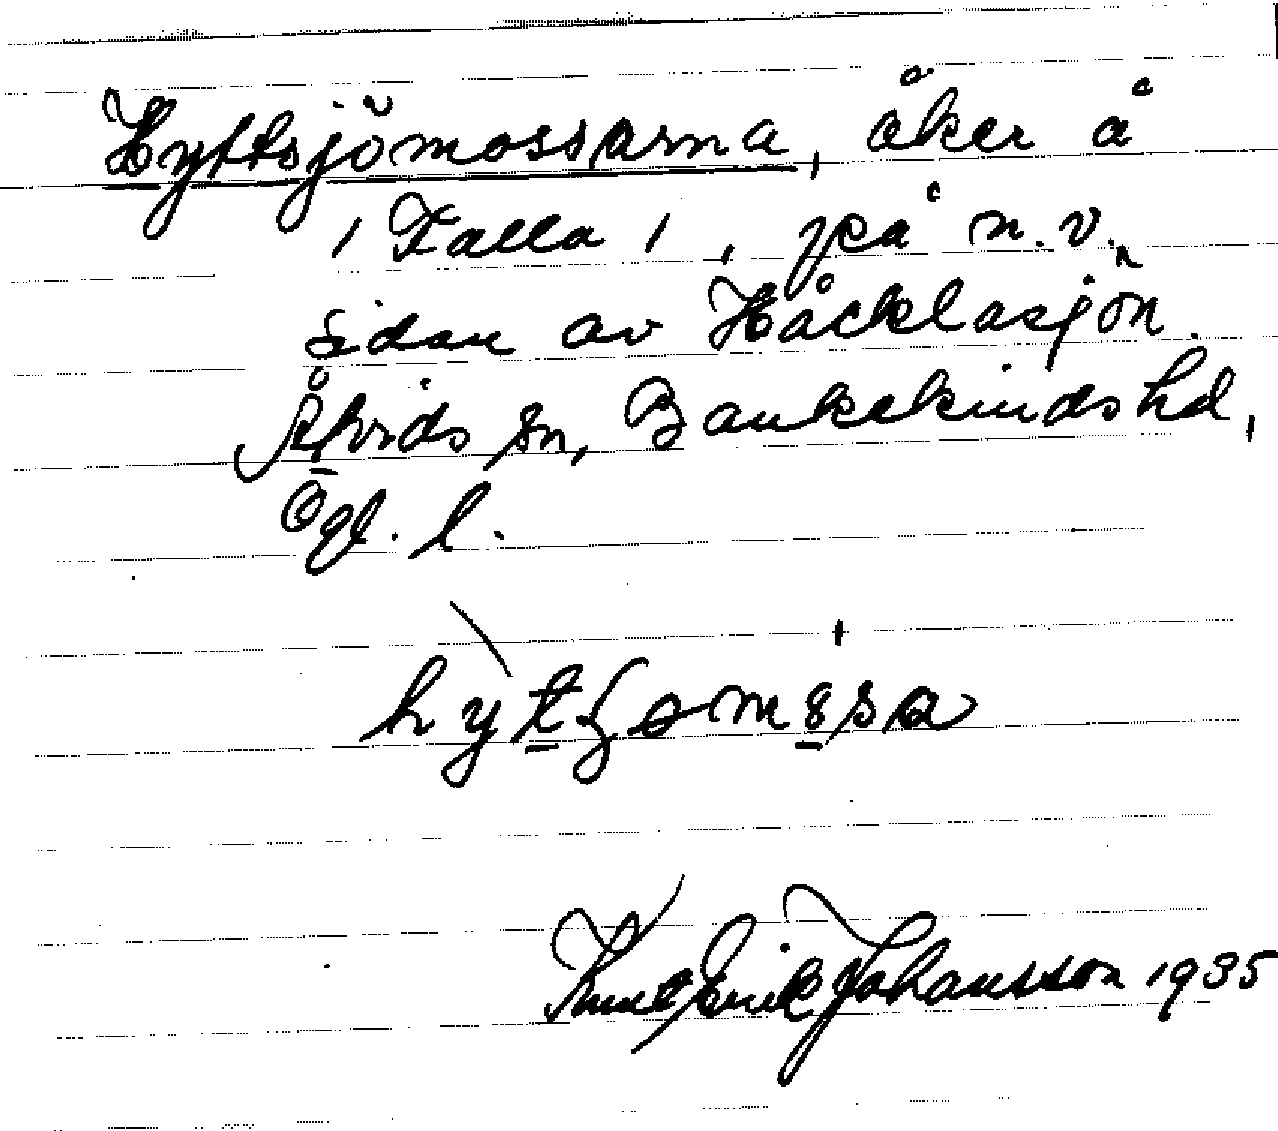 Hyttsjömossarna, åker å
/ Falla /, på n. v.
sidan av Häcklasjön.
Åtvids sn, Bankekinds hd,
Ögl. l.
Knut Erik Johansson 1935